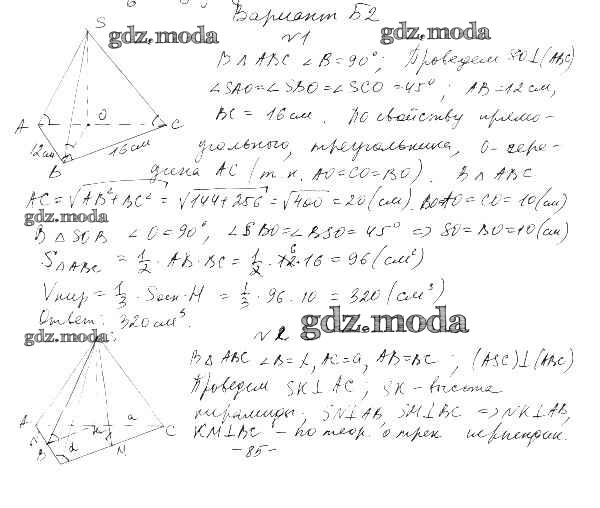 Вариант Б2
gdz.moda
gdz.moda
№1
S
A
O
C
B
12см
16см
В △ ABC ∠B = 90°; Проведем SO⊥(ABC)
∠SAO = ∠SBO = ∠SCO = 45°; AB = 12см,
BC = 16см. По свойству прямо-
угольного, треугольника, O - сере-
дина AC (т.к. AO = CO = BO). В △ ABC
AC = √AB² + BC² = √144 + 256 = √400 = 20 (см). BO = AO = CO = 10 (см)
gdz.moda
В △ SOB ∠O = 90°, ∠SBO = ∠BSO = 45° => SO = BO = 10 (см)
S△ABC = 1/2 · AB · BC = 1/2 · 12 · 16 = 96 (см²)
Vпир = 1/3 · Sосн · H = 1/3 · 96 · 10 = 320 (см³)
Ответ: 320см³.
gdz.moda
№2
gdz.moda
A
N
B
K
a
C
M
В △ ABC ∠B = α, AC = a, AB = BC; (ASC)⊥(ABC)
Проведем SK⊥AC; SK - высота
пирамиды; SN⊥AB, SM⊥BC => NK⊥AB,
KM⊥BC - по теор. о трех перпендик.
-85-